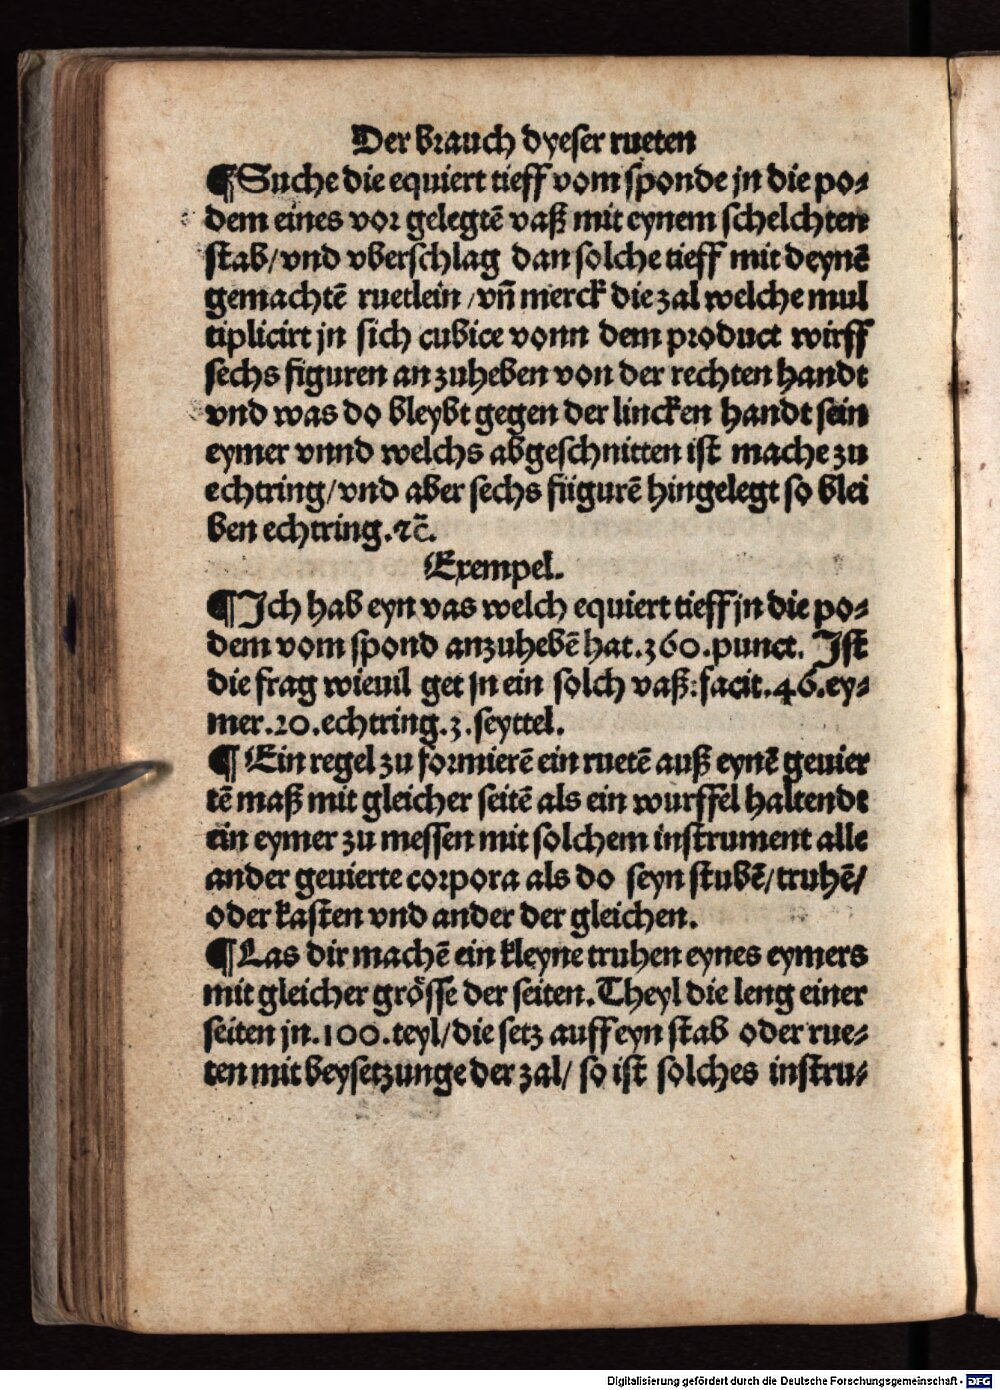 Der brauch dyeser rueten
¶Suche die equiert tieff vom sponde jn die po⸗
dem eines vor gelegtē vaß mit eynem schelchten
stab/vnd vberschlag dan solche tieff mit deynē
gemachtē ruetlein /vn̄ merck die zal welche mul
tiplicirt jn sich cubice vonn dem product wirff
sechs figuren an zuheben von der rechten handt
vnd was do bleybt gegen der lincken handt sein
eymer vnnd welchs abgeschnitten ist mache zu
echtring/vnd aber sechs fiigurē hingelegt so blei
ben echtring.⁊c̄.
Exempel.
¶Jch hab eyn vas welch equiert tieff jn die po⸗
dem vom spond anzuhebē hat.360.punct. Jst
die frag wieuil get jn ein solch vaß:facit.46.ey⸗
mer.20.echtring.3.seyttel.
¶ Ein regel zu formierē ein ruetē auß eynē geuier
tē maß mit gleicher seitē als ein wurffel haltendt
ein eymer zu messen mit solchem instrument alle
ander geuierte corpora als do seyn stubē/truhē/
oder kasten vnd ander der gleichen.
¶Las dir machē ein kleyne truhen eynes eymers
mit gleicher grösse der seiten.Theyl die leng einer
seiten jn.100.teyl/die setz auff eyn stab oder rue⸗
ten mit beysetzunge der zal/ so ist solches instru⸗
Digitalisierung gefördert durch die Deutsche Forschungsgemeinschaft - DFG